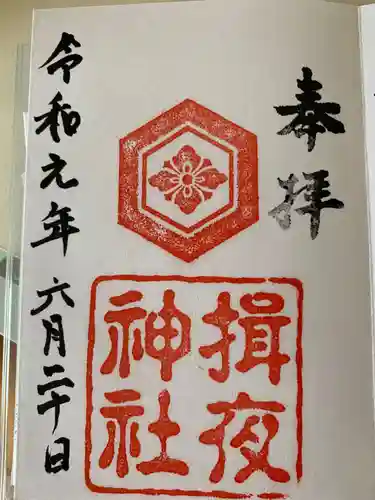 奉拝
揖夜
神社
令和元年六月二十日